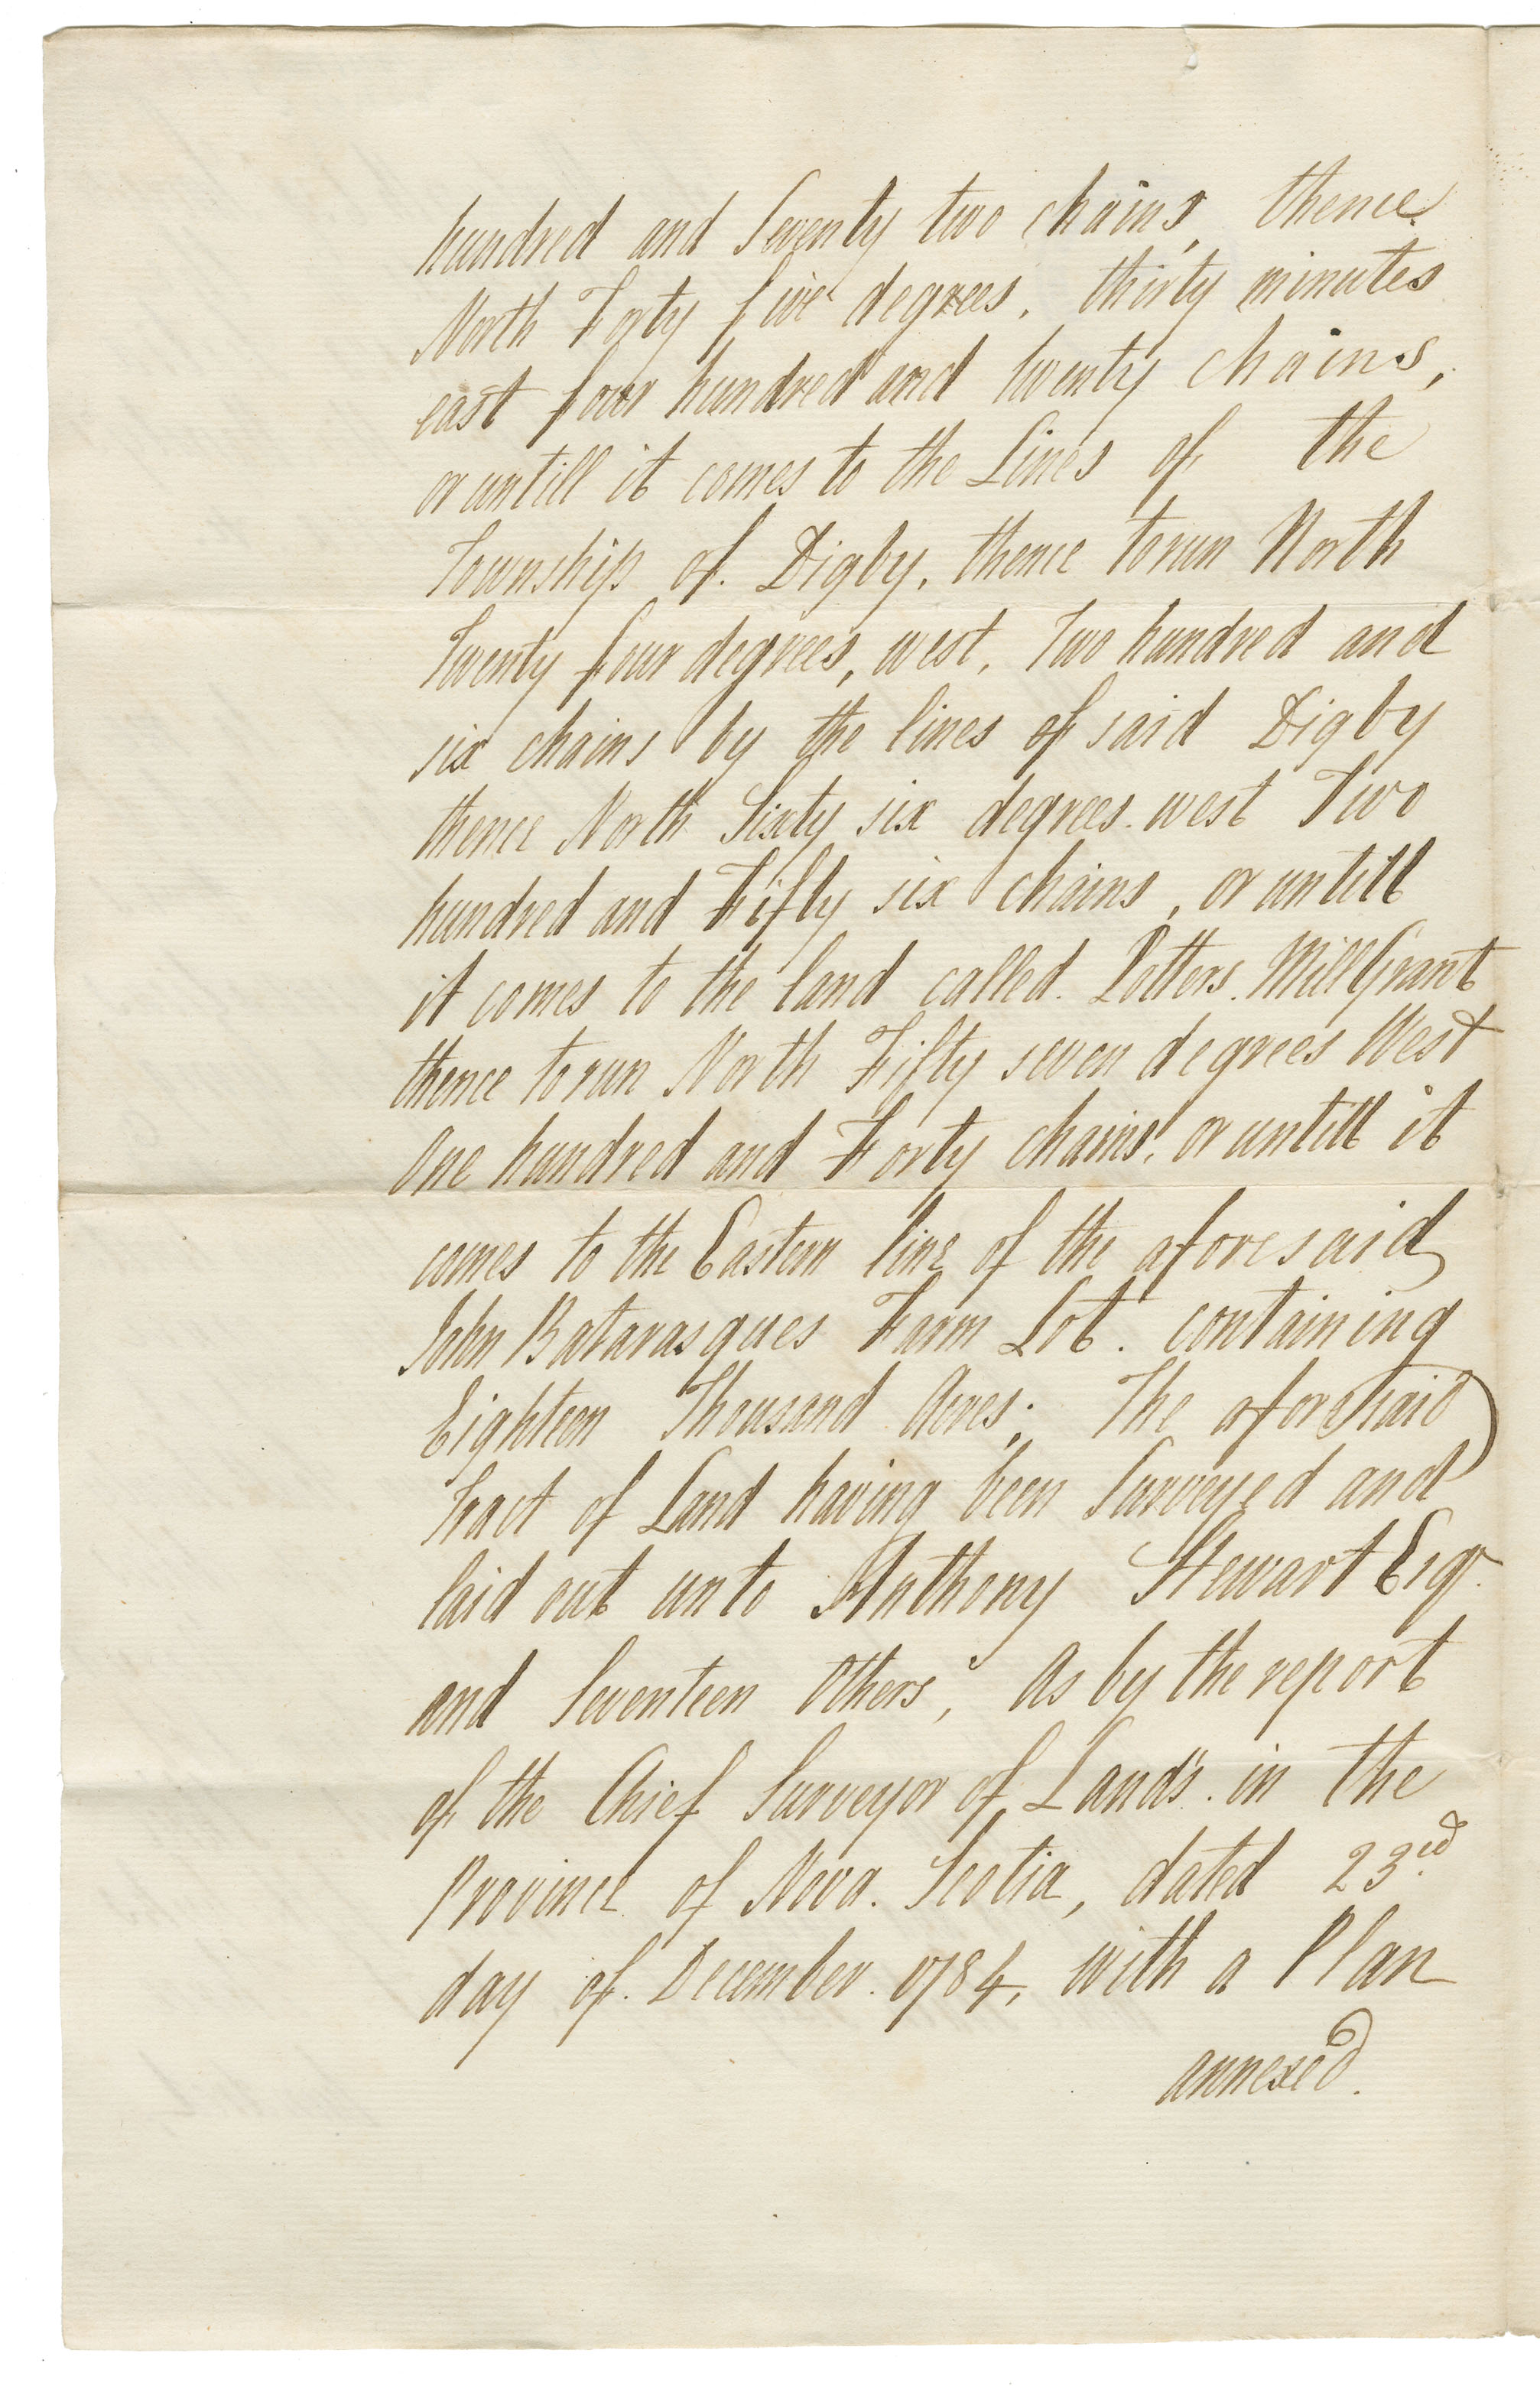 hundred and Seventy two chains, thence
North Forty five degrees, thirty minutes
east four hundred and twenty chains,
or untill it comes to the Lines of the
Township of. Digby, thence to run North
Twenty four degrees, west, Two hundred and
six chains by the lines of said Digby
thence North Sixty six degrees. west Two
hundred and Fifty six chains, or untill
it comes to the land called. Potters. Mill Grant
thence to run North Fifty seven degrees West
One hundred and Forty chains, or untill it
comes to the Eastern line of the aforesaid
John Batarasques Farm Lot. containing
Eighteen Thousand Acres; The aforesaid
Tract of Land having been Surveyed and
laid out unto Anthony Stewart Esqr.
and Seventeen Others, As by the report
of the Chief Surveyor of Lands. in the
Province of Nova. Scotia, dated 23rd
day of. December. 1784, with a Plan
annexed.